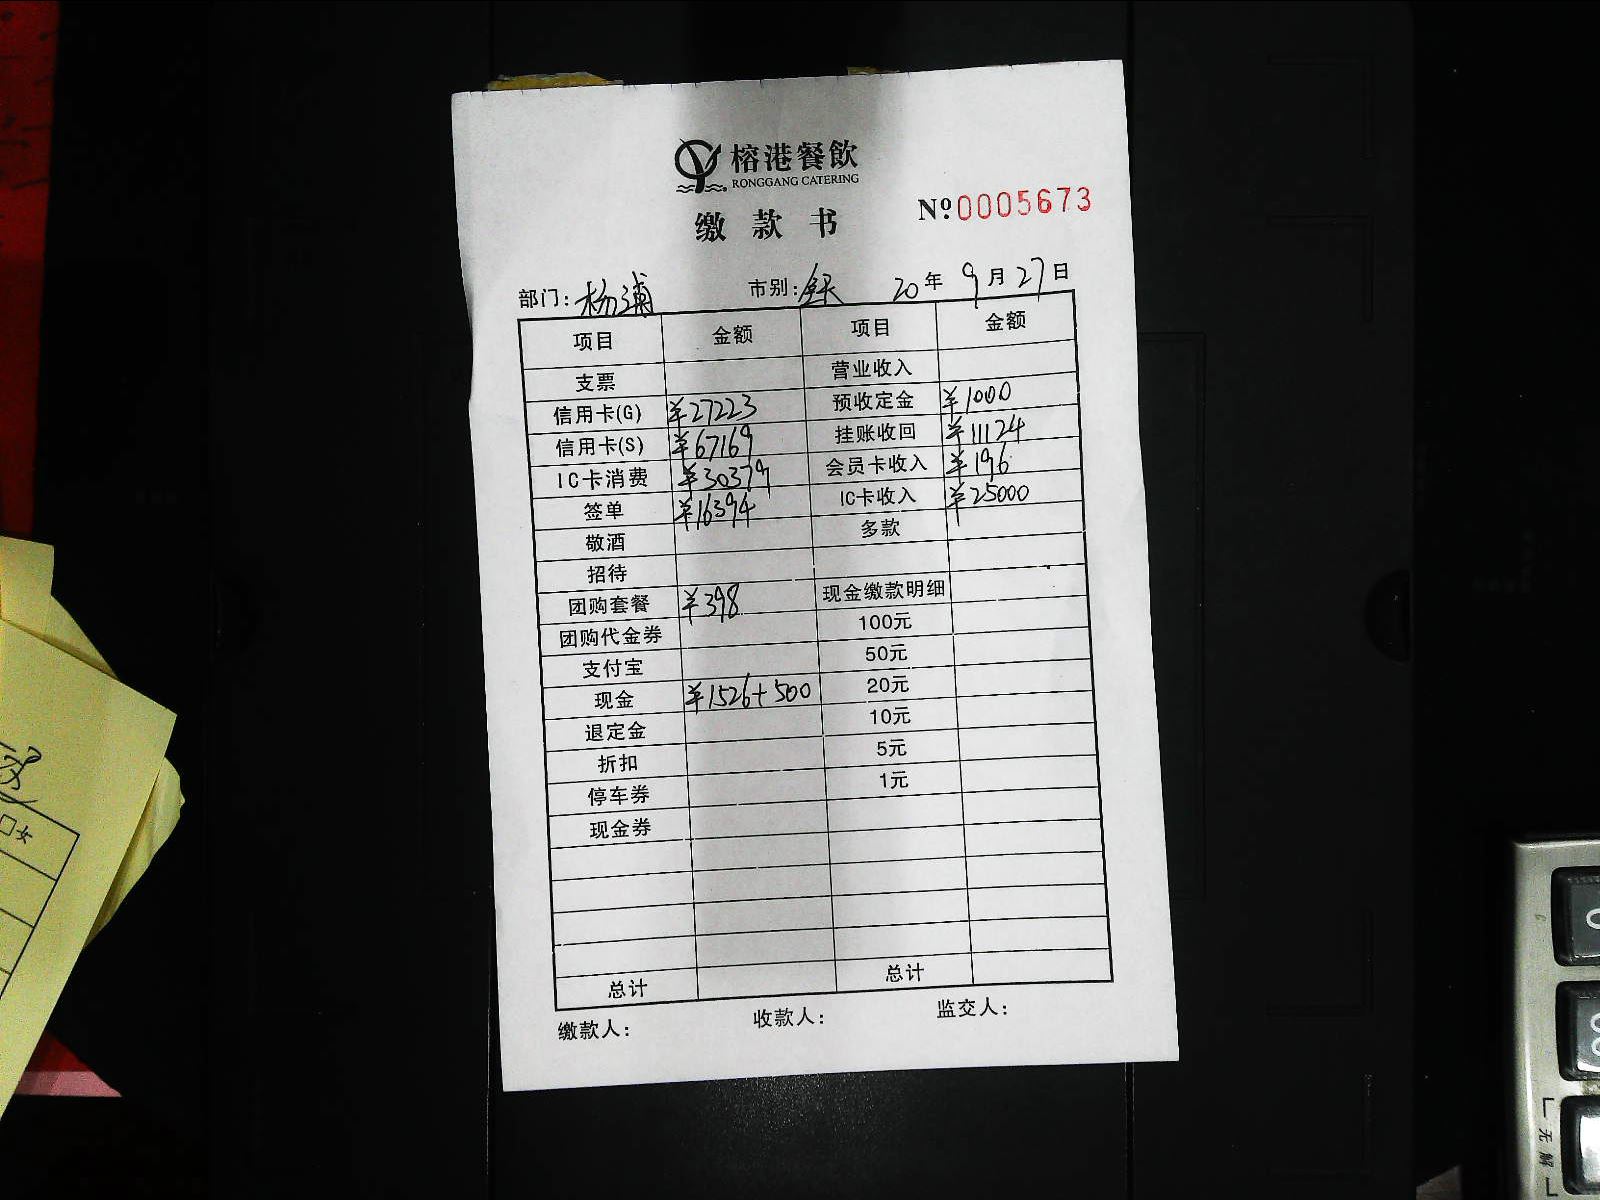 榕港餐飲
RONGGANG CATERING
缴款书
Nº0005673
部门：杨浦 市别：全天 20年9月27日
项目 金额 项目 金额
支票 营业收入
信用卡(G) ¥27223 预收定金 ¥1000
信用卡(S) ¥67169 挂账收回 ¥11124
IC卡消费 ¥30379 会员卡收入 ¥196
签单 ¥16394 IC卡收入 ¥25000
敬酒 多款
招待
团购套餐 ¥398 现金缴款明细
团购代金券 100元
支付宝 50元
现金 ¥1526+500 20元
退定金 10元
折扣 5元
停车券 1元
现金券
总计 总计
缴款人： 收款人： 监交人：
□女
无
解